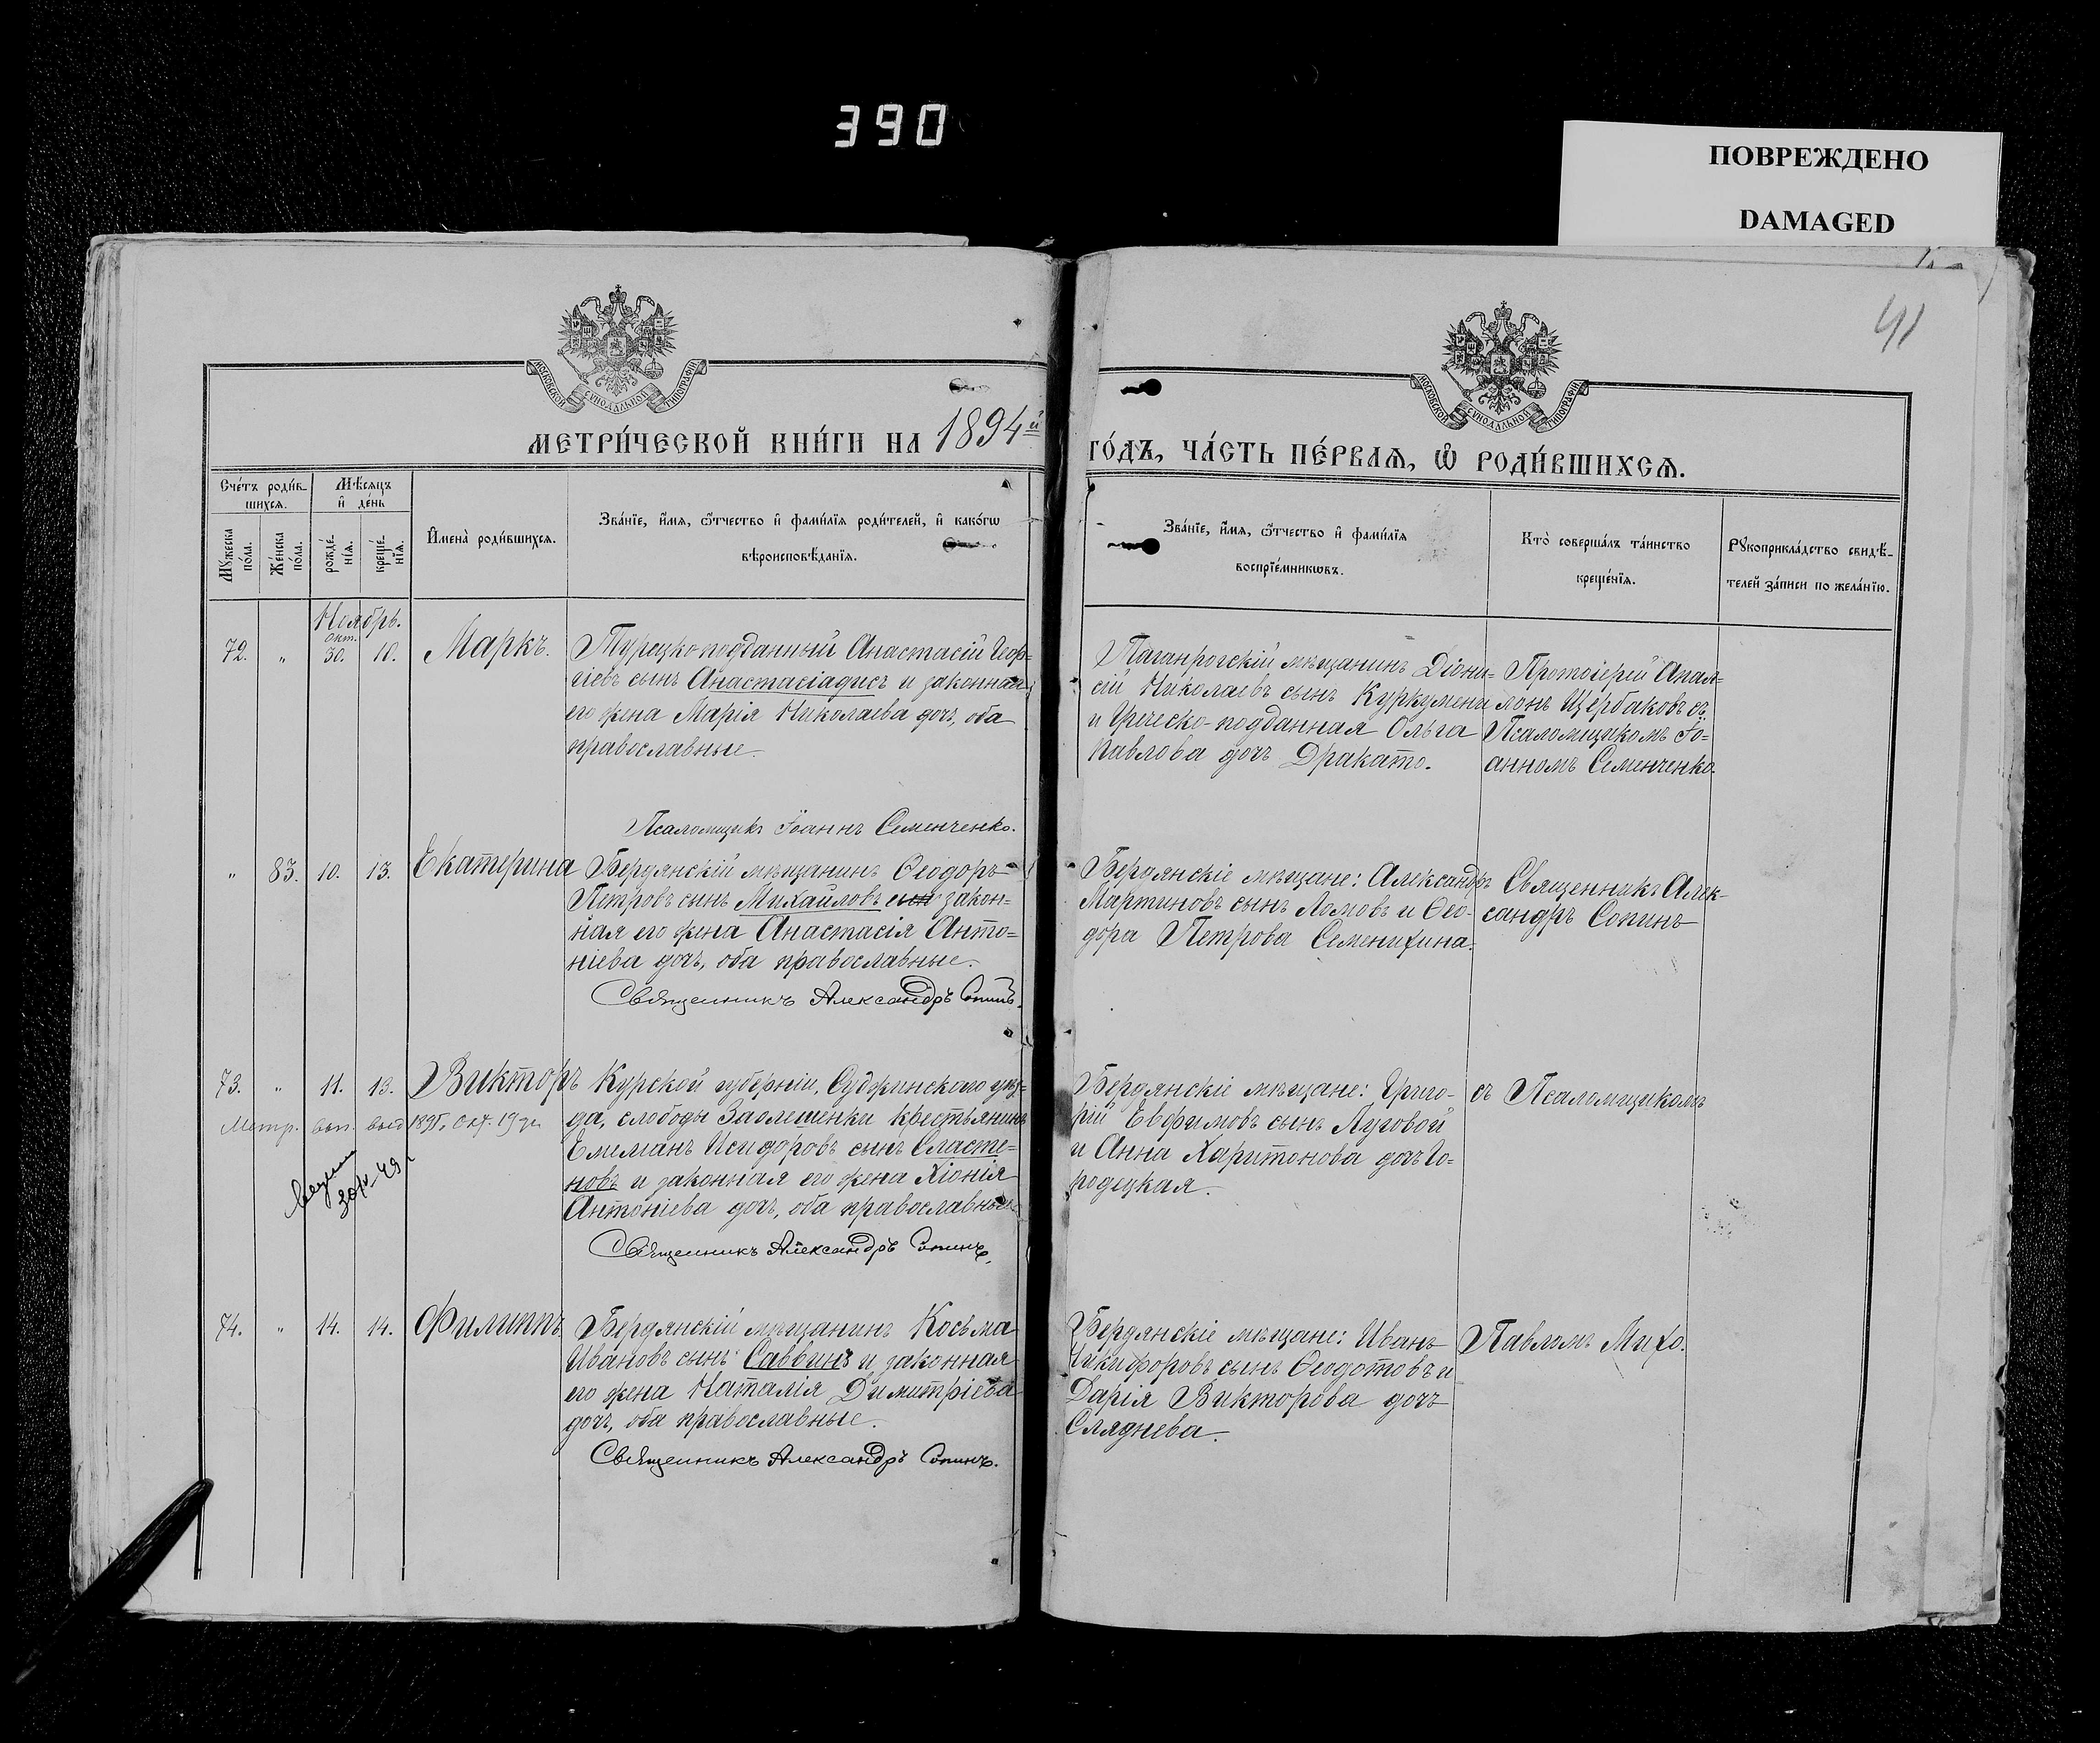 390
ПОВРЕЖДЕНО
DAMAGED
41
МОСКОВСКОЙ СѴНОДАЛЬНОЙ ТИПОГРАФІИ
МОСКОВСКОЙ СѴНОДАЛЬНОЙ ТИПОГРАФІИ
МЕТРИ́ЧЕСКОЙ КНИ́ГИ НА 1894й
ГО́ДЪ, ЧА́СТЬ ПЕ́РВАѦ, Ѽ РОДИ́ВШИХСѦ.
Сче́тъ роди́в-
шихсѧ.
Мѣсѧцъ
и҆ де́нь
Мꙋжеска по́ла.
Же́нска по́ла.
рожде́нїѧ.
креще́нїѧ.
И҆мена̀ роди́вшихсѧ.
Зва́нїе, и҆́мѧ, ѻ҆́тчество и҆ фами́лїѧ роди́телей, и҆ како́гѡ
вѣроисповѣ́данїѧ.
Зва́нїе, и҆́мѧ, ѻ҆́тчество и҆ фами́лїѧ
воспрїе́мникѡвъ.
Кто̀ соверша́лъ та́инство
креще́нїѧ.
Рꙋкоприкла́дство свидѣ́-
телей за́писи по жела́нїю.
Ноябрь.
72. „ Окт. 30. 10. Маркъ.
Турецко-подданный Анастасій Геор-
гіевъ сынъ Анастасіадисъ и законная
его жена Марія Николаева дочь, оба
православные.
Псаломщикъ Іоаннъ Семенченко.
Таганрогскій мѣщанинъ Діони-
сій Николаевъ сынъ Куркумели
и Греческо-подданная Ольга
Павлова дочь Дракато.
Протоіерей Апол-
лонъ Щербаковъ съ
Псаломщикомъ Іо-
анномъ Семенченко.
„ 83. 10. 13. Екатерина
Бердянскій мѣщанинъ Ѳеодоръ
Петровъ сынъ Михайловъ сын закон-
ная его жена Анастасія Анто-
ніева дочь, оба православные.
Священникъ Александръ Сопинъ.
Бердянскіе мѣщане: Александръ
Мартиновъ сынъ Ломовъ и Ѳео-
дора Петрова Семенихина.
Священникъ Алек-
сандръ Сопинъ
73. „ 11. 13. Викторъ
Метр. вып. выд 1895 г. Окт. 19 дн.
30/
Курской губерніи, Суджинскаго уѣз-
да, слободы Заолешенки крестьянинъ
Емельянъ Исидоровъ сынъ Сласте-
новъ и законная его жена Хіонія
Антоніева дочь, оба православные.
Священникъ Александръ Сопинъ.
Бердянскіе мѣщане: Григо-
рій Евфимовъ сынъ Луговой
и Анна Харитонова дочь Го-
родецкая.
съ Псаломщикомъ
74. „ 14. 14. Филиппъ.
Бердянскій мѣщанинъ Косьма
Ивановъ сынъ Саввинъ и законная
его жена Наталія Димитріева
дочь, оба православные.
Священникъ Александръ Сопинъ.
Бердянскіе мѣщане: Иванъ
Никифоровъ сынъ Ѳеодотовъ и
Дарія Викторова дочь
Сляднева.
Павломъ Михо.